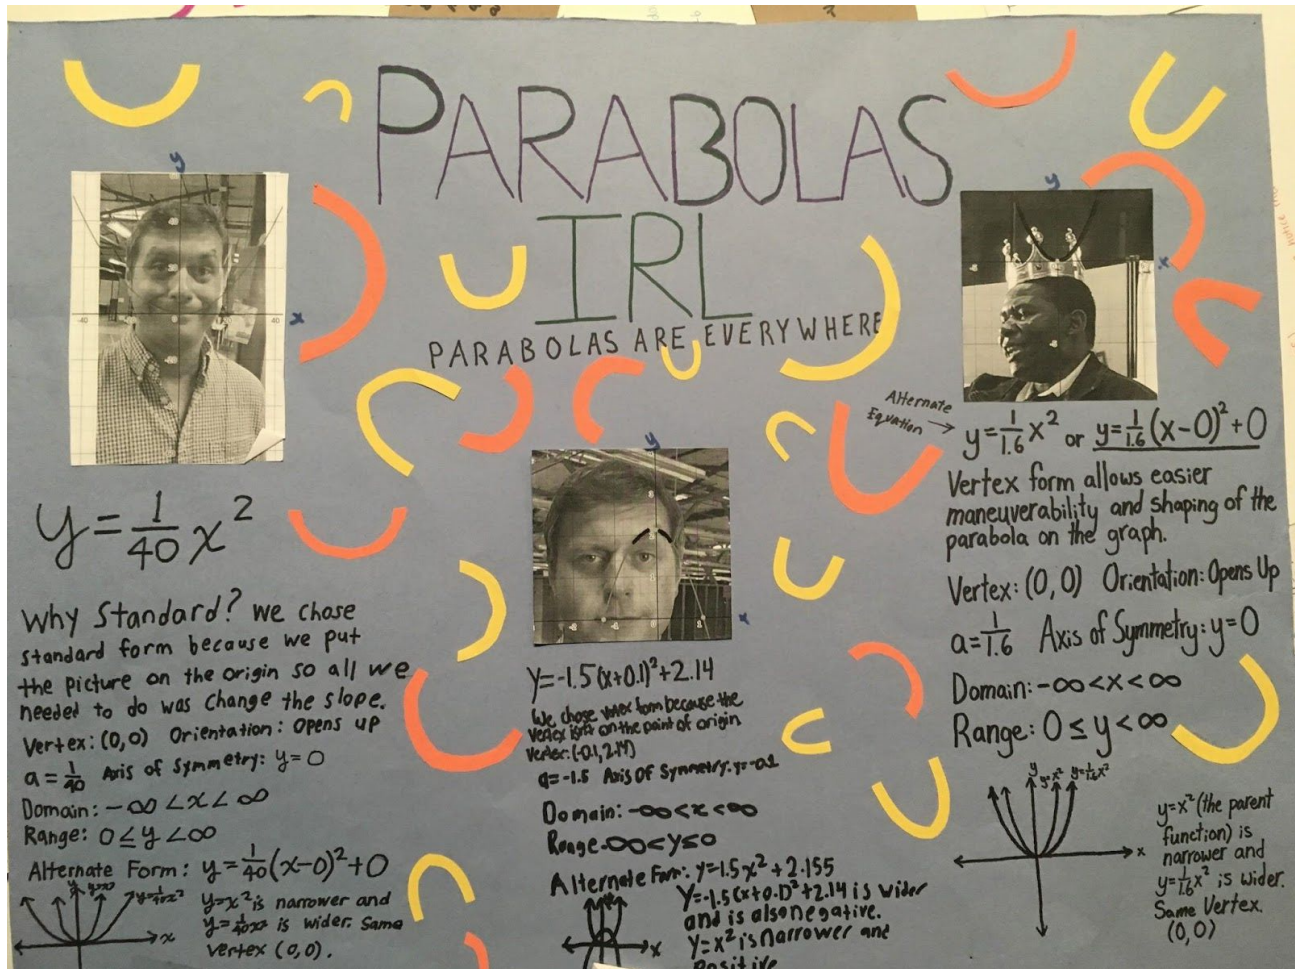 PARABOLAS
IRL
PARABOLAS ARE EVERYWHERE
y
x
-40
40
y = 1/40 x²
Why Standard? we chose
standard form because we put
the picture on the origin so all we
needed to do was change the slope.
Vertex: (0,0) Orientation: Opens up
a = 1/40 Axis of Symmetry: y = 0
Domain: -∞ < x < ∞
Range: 0 ≤ y < ∞
Alternate Form: y = 1/40 (x-0)² + 0
x
y=x² is narrower and
y= 1/40 x² is wider. Same
vertex (0,0).
y
x
Y=-1.5(x+0.1)²+2.14
We chose vertex form because the
vertex isn't on the point of origin
vertex: (-0.1, 2.14)
a=-1.5 Axis Of Symmetry: y=-0.1
Domain: -∞<x<∞
Range -∞<y≤0
Alternate Form: y=1.5x²+2.155
Y=-1.5(x+0.1)²+2.14 is wider
and is also negative.
Y=x² is narrower and
positive
x
y
x
Alternate
Equation →
y= 1/1.6 x² or y= 1/1.6 (x-0)²+0
Vertex form allows easier
maneuverability and shaping of the
parabola on the graph.
Vertex: (0,0) Orientation: Opens Up
a= 1/1.6 Axis of Symmetry: y=0
Domain: -∞<x<∞
Range: 0≤y<∞
y
y=x² y= 1/1.6 x²
x
y=x² (the parent
function) is
narrower and
y= 1/1.6 x² is wider.
Same Vertex.
(0,0)